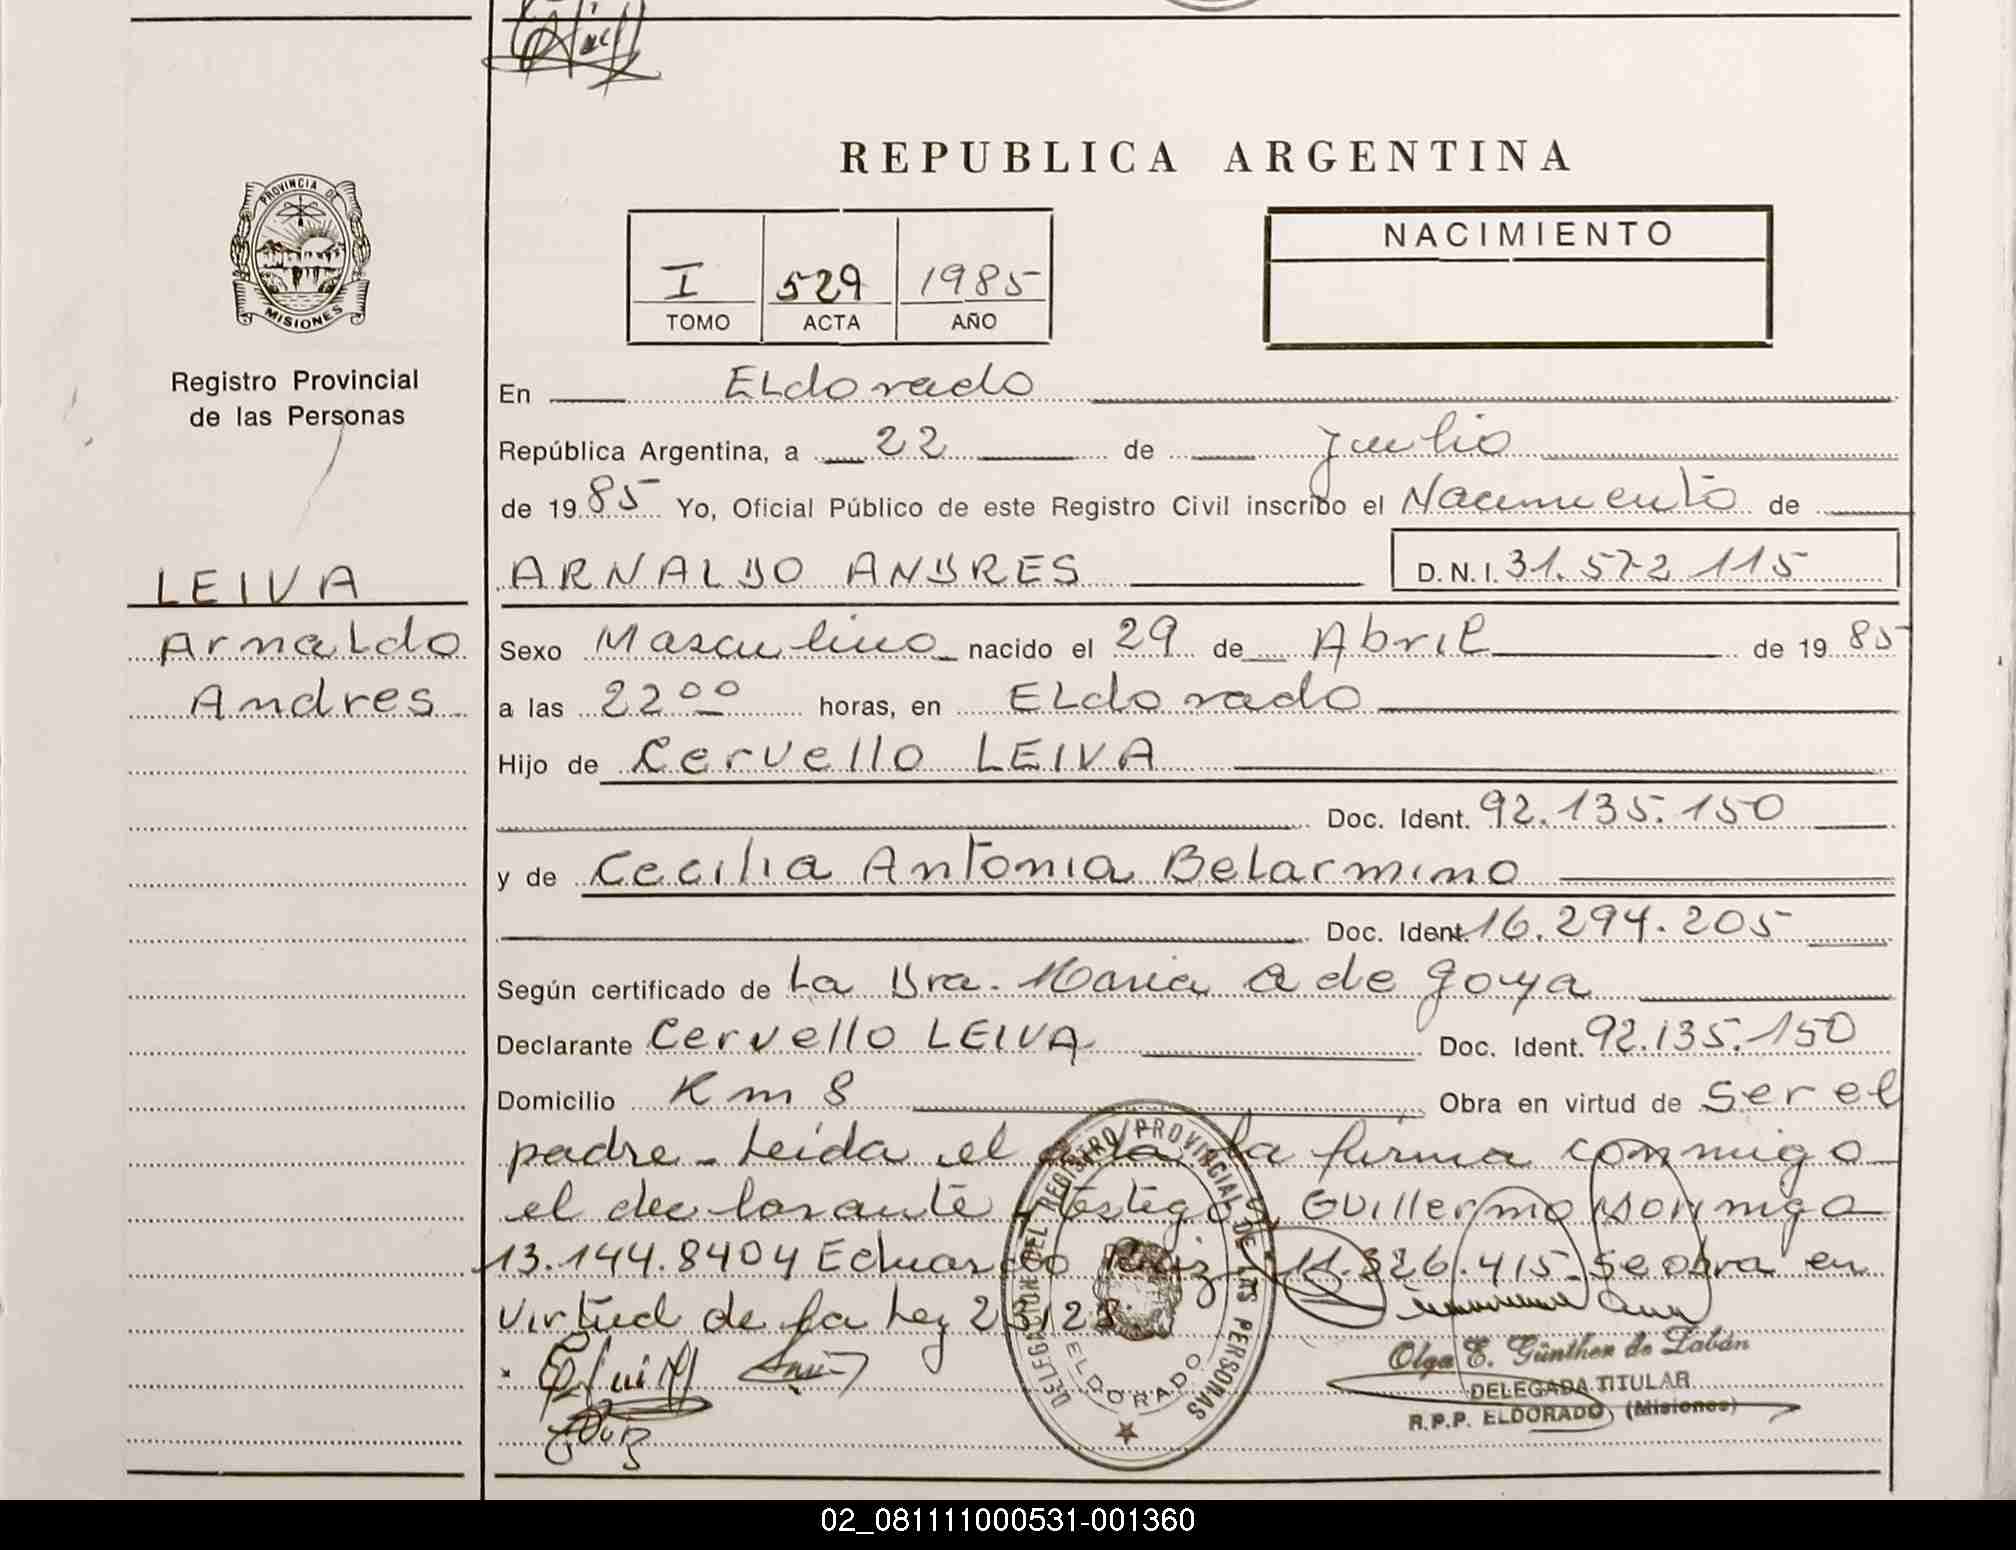 REPUBLICA ARGENTINA
PROVINCIA DE
MISIONES
Registro Provincial
de las Personas
LEIVA
Arnaldo
Andres
I 529 1985
TOMO ACTA AÑO
NACIMIENTO
En Eldorado
República Argentina, a 22 de julio
de 1985 Yo, Oficial Público de este Registro Civil inscribo el Nacimiento de
ARNALDO ANDRES D.N.I. 31.572.115
Sexo Masculino nacido el 29 de Abril de 1985
a las 22 00 horas, en Eldorado
Hijo de Cervello LEIVA
Doc. Ident. 92.135.150
y de Cecilia Antonia Belarmino
Doc. Ident. 16.294.205
Según certificado de La Dra. Maria A de Goya
Declarante Cervello LEIVA Doc. Ident. 92.135.150
Domicilio Km 8 Obra en virtud de ser el
padre - Leida el acta la firma conmigo
el declarante y testigos Guillermo
13.144.8404 Eduardo Ruiz 11.326.415. Se obra en
virtud de la Ley
DELEGACION DEL REGISTRO PROVINCIAL DE LAS PERSONAS
ELDORADO
Olga E. Günther de Labán
DELEGADA TITULAR
R.P.P. ELDORADO (Misiones)
02_081111000531-001360